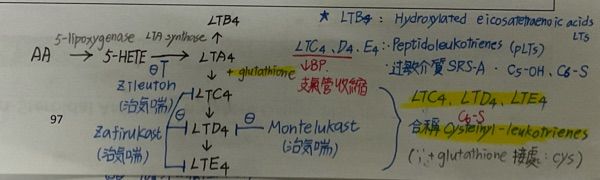 LTB4
5-lipoxygenase LTA synthase
AA → 5-HETE → LTA4
+ glutathione
⊖T
Zileuton
(治氣喘)
LTC4
97
Zafirlukast ⊖ LTD4 ⊖ Montelukast
(治氣喘) (治氣喘)
LTE4
★ LTB4: Hydroxylated eicosatetraenoic acids
LTS
LTC4、D4、E4: Peptidoleukotrienes (pLTs)
↓BP.
支氣管收縮
·過敏介質 SRS-A · C5-OH、C6-S
LTC4、LTD4、LTE4
C6-S
合稱 Cysteinyl-leukotrienes
(∵ + glutathione 接處: cys)